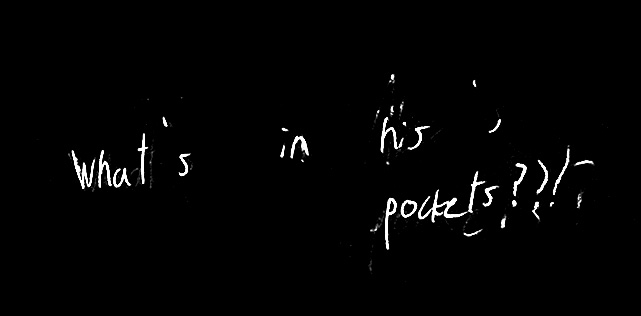 What's in his
pockets???!